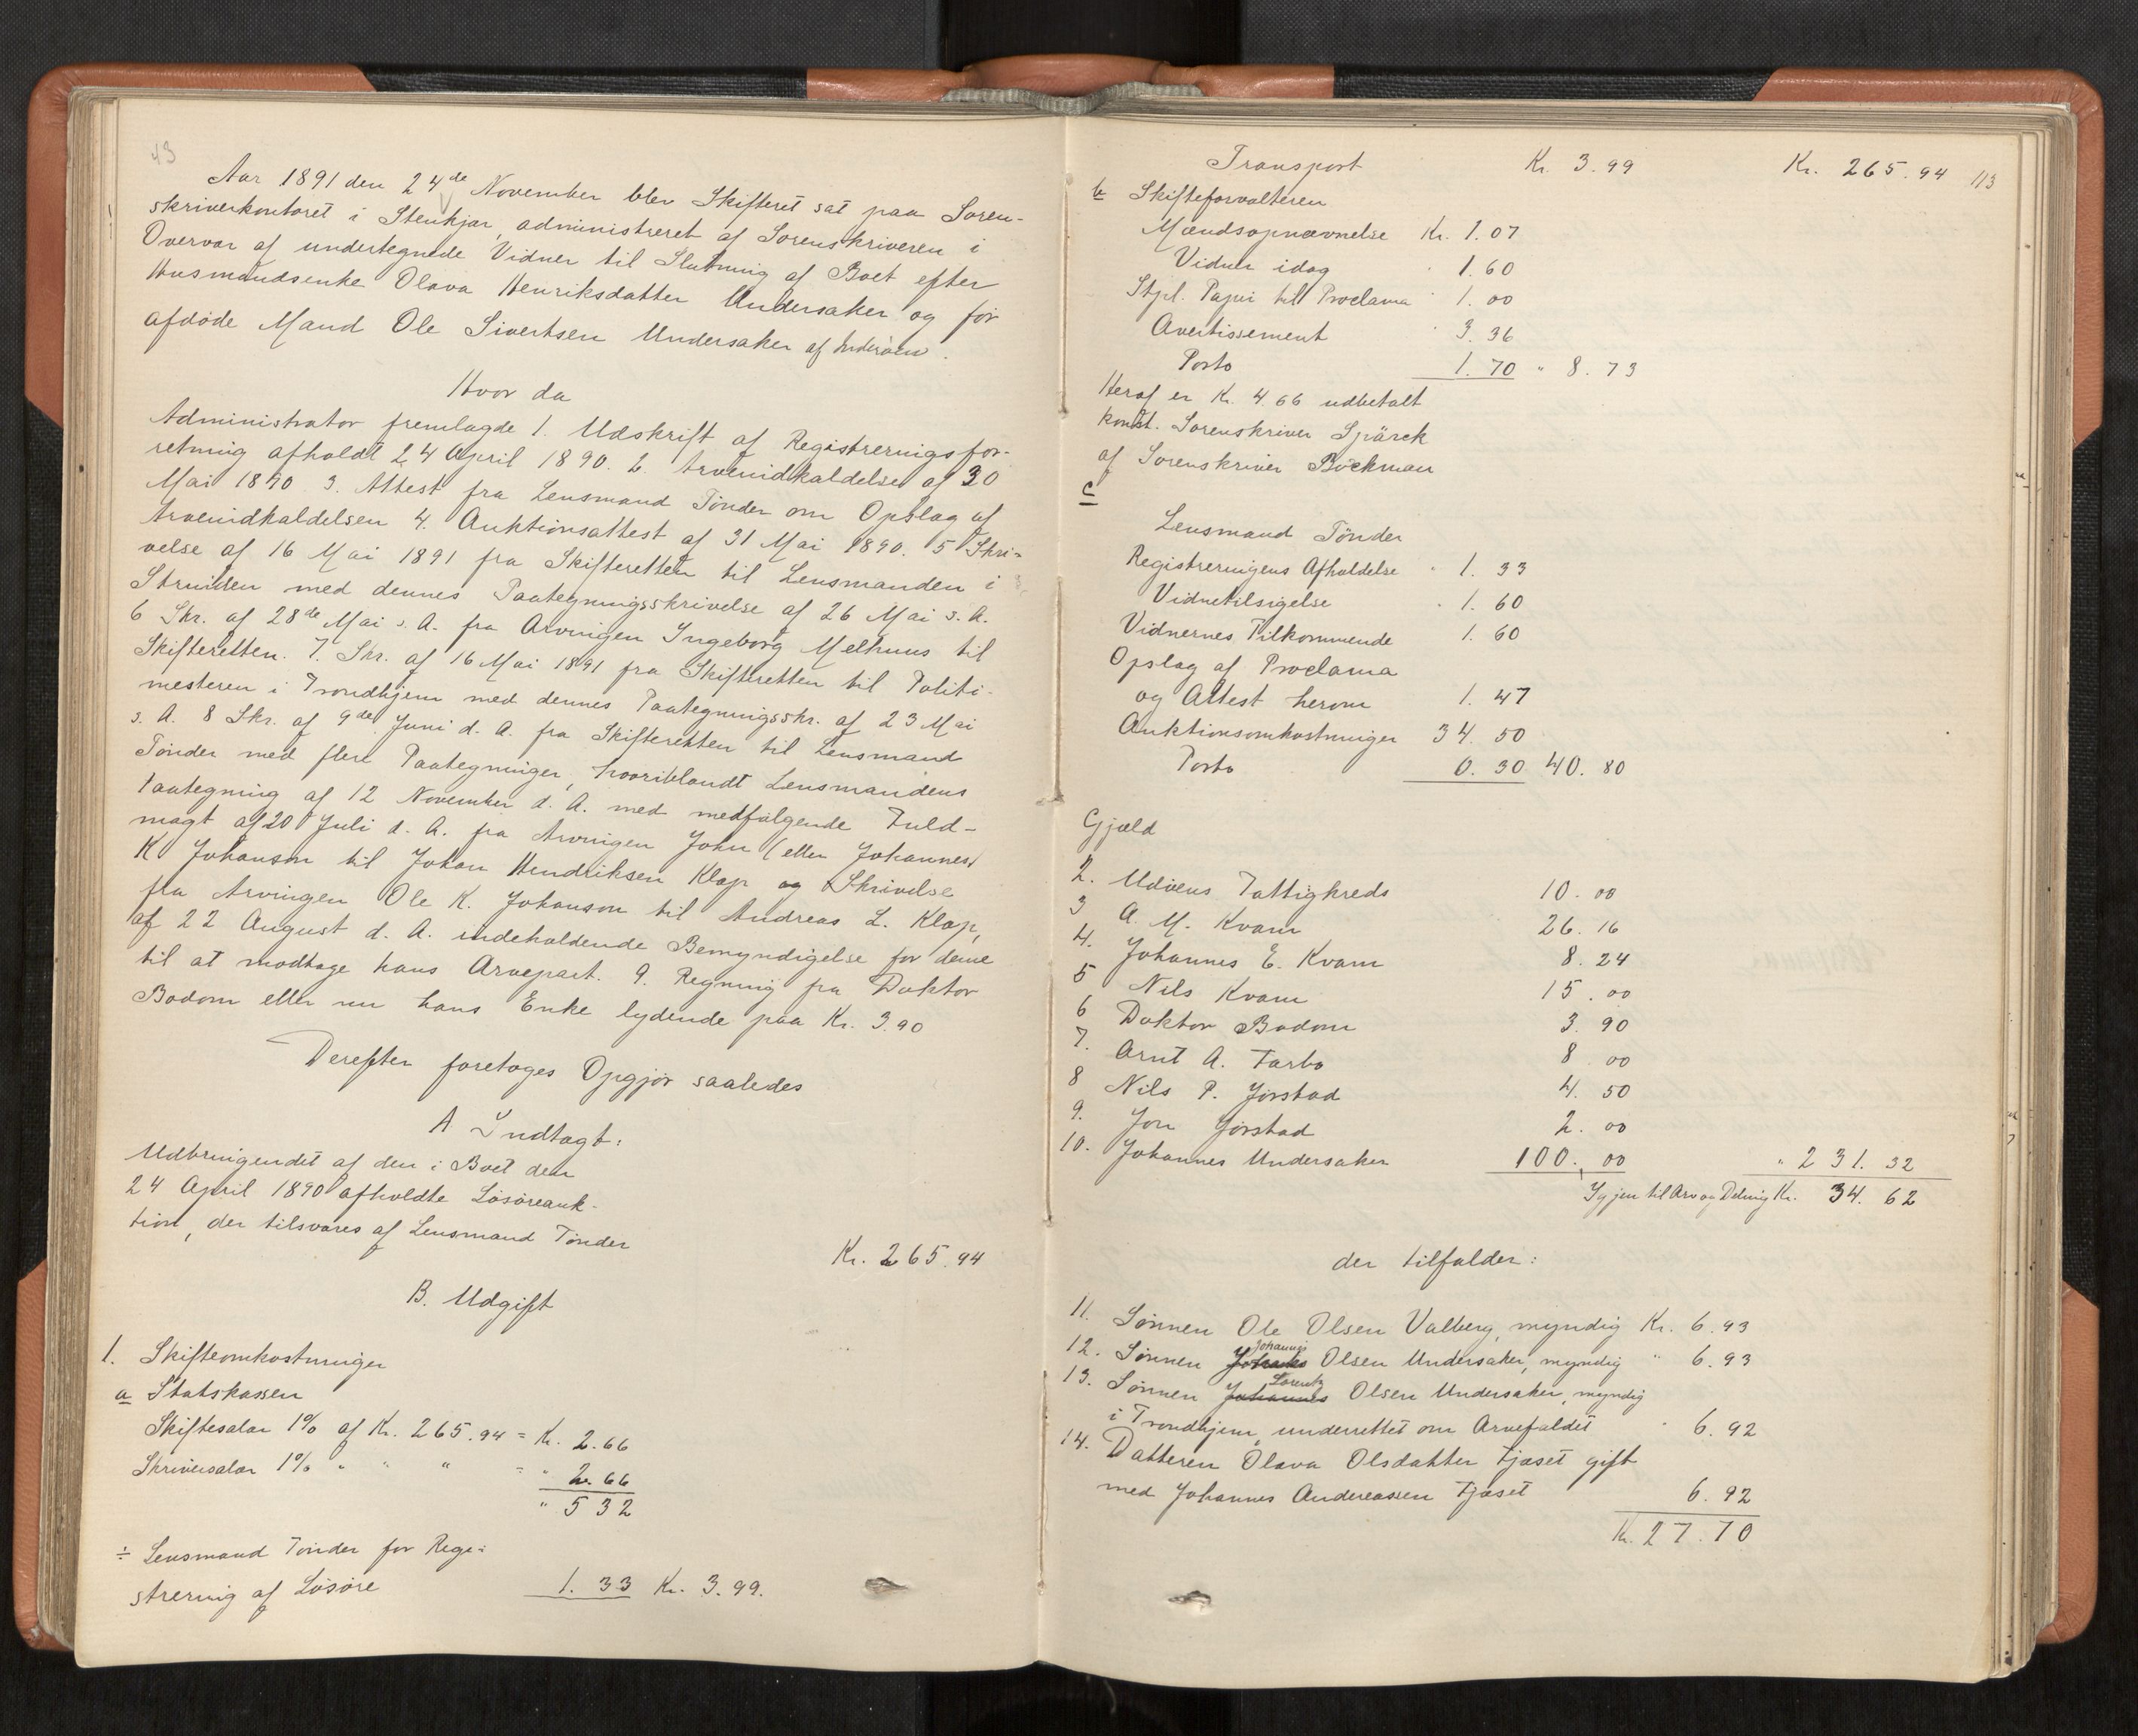 43
Aar 1891 den 24de November blev Skifteret sat paa Soren-
skriverkontoret i Stenkjær, administreret af Sorenskriveren i
Overvær af undertegnede Vidner til Slutning af Boet efter
Husmandsenke Olava Henriksdatter Undersaker og før
afdøde Mand Ole Sivertsen Undersaker af Inderøen.
Hvor da
Administrator fremlagde 1. Udskrift af Registreringsfor-
retning afholdt 24 April 1890. 2. Arveindkaldelse af 30
Mai 1890 3. Attest fra Lensmand Tønder om Opslag af
Arveindkaldelsen 4. Auktionsattest af 31 Mai 1890. 5 Skri-
velse af 16 Mai 1891 fra Skifteretten til Lensmanden i
Strinden med dennes Paategningsskrivelse af 26 Mai s. A.
6 Skr. af 28de Mai s. A. fra Arvingen Ingeborg Melhuus til
Skifteretten. 7. Skr. af 16 Mai 1891 fra Skifteretten til Politi-
mesteren i Trondhjem med dennes Paategningsskr. af 23 Mai
s. A. 8 Skr. af 9de Juni d. A. fra Skifteretten til Lensmand
Tønder med flere Paategninger, hvoriblandt Lensmandens
Paategning af 12 November d. A. med medfølgende Fuld-
magt af 20 Juli d. A. fra Arvingen John (eller Johannes)
K Johanson til Johan Hendriksen Klap og Skrivelse
fra Arvingen Ole K. Johanson til Andreas L. Klap,
af 22 August d. A. indeholdende Bemyndigelse for denne
til at modtage hans Arvepart. 9. Regning fra Doktor
Bodom eller nu hans Enke lydende paa Kr. 3.90
Derefter foretoges Opgjør saaledes
A Indtægt:
Udbringendet af den i Boet den
24 April 1890 afholdte Løsøreauk-
tion, der tilsvares af Lensmand Tønder Kr. 265.94
B. Udgift
1. Skifteomkostninger
a Statskassen
Skiftesalær 1% af Kr. 265.94 = Kr. 2.66
Skriversalær 1% " " " = " 2.66
" 5 32
÷ Lensmand Tønder for Regi-
strering af Løsøre 1. 33 Kr. 3.99.
Transport Kr. 3.99 Kr. 265.94 113
b Skifteforvalteren
Mændsopnævnelse Kr. 1.07
Vidner idag " 1.60
Stpl. Papir til Proclama " 1.00
Avertissement " 3.36
Porto 1.70 " 8.73
Heraf er Kr. 4.66 udbetalt
konst. Sorenskriver Spärck
af Sorenskriver Bøckman
c
Lensmand Tønder
Registreringens Afholdelse " 1. 33
Vidnetilsigelse " 1. 60
Vidnernes Tilkommende 1. 60
Opslag af Proclama
og Attest herom 1. 47
Auktionsomkostninger 34. 50
Porto 0. 30 40. 80
Gjæld
2. Udøens Fattigkreds 10. 00
3 A. M. Kvam 26. 16
4. Johannes E. Kvam 8. 24
5 Nils Kvam 15. 00
6 Doktor Bodom 3. 90
7. Arnt A. Tarbo 8 00
8 Nils P. Jørstad 4. 50
9. Jon Jørstad 2. 00
10. Johannes Undersaker 100. 00 " 231. 32
Igjen til Arv og Deling Kr. 34. 62
der tilfalder:
11. Sønnen Ole Olsen Valberg, myndig Kr. 6.93
Johannes
12. Sønnen Olsen Undersaker, myndig " 6.93
Lorentz
13. Sønnen Johannes Olsen Undersaker, myndig
i Trondhjem, underrettet om Arvefaldet " 6.92
14. Datteren Olava Olsdatter Tjæset gift
med Johannes Andreassen Tjæset 6.92
Kr. 27.70